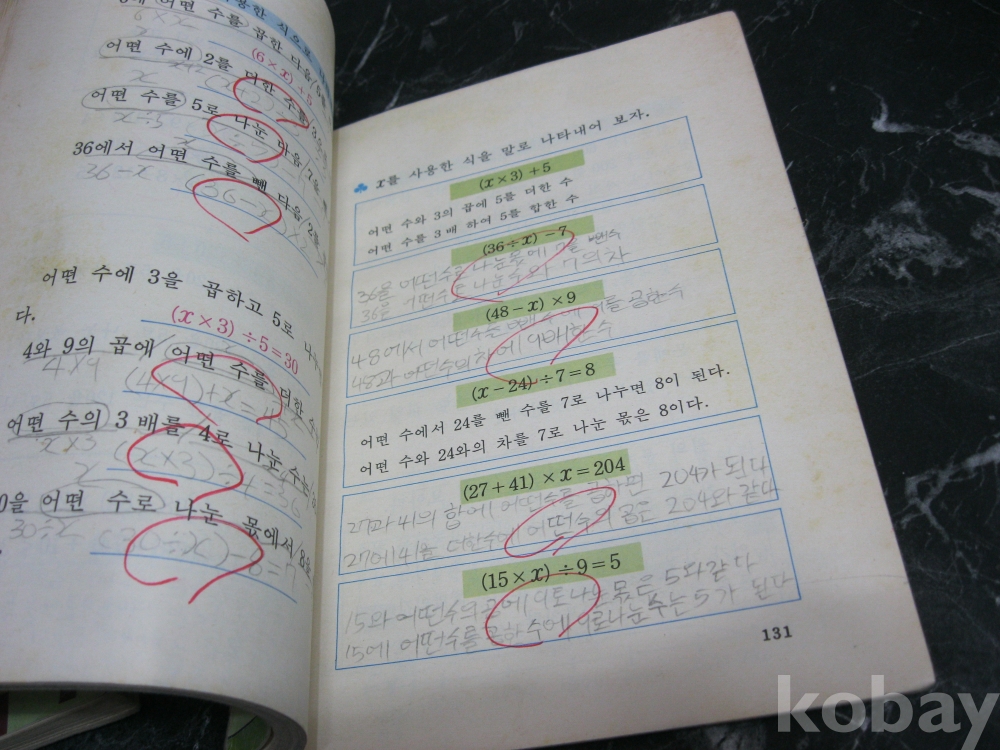 어떤 수를 곱한 다음/5를
(6×x)+5
어떤 수에 2를 더한 수를 3
어떤 수를 5로 나눈 다음/7을
x÷5
36에서 어떤 수를 뺀 다음/2를
36-x
어떤 수에 3을 곱하고 5로 나누
다.
(x×3)÷5=30
4와 9의 곱에 어떤 수를 더한 수
4×9
(4×9)+x=
어떤 수의 3배를 4로 나눈 수는
x×3
(x×3)÷4=36
0을 어떤 수로 나눈 몫에서/8을
30÷x
(30÷x)-8=7
x를 사용한 식을 말로 나타내어 보자.
(x×3)+5
어떤 수와 3의 곱에 5를 더한 수
어떤 수를 3배 하여 5를 합한 수
(36÷x)-7
36을 어떤수로 나눈몫에 7을 뺀수
36을 어떤수로 나눈 몫과 7의 차
(48-x)×9
48에서 어떤수를 뺀수에 9를 곱한수
48과 어떤수의 차에 9배한 수
(x-24)÷7=8
어떤 수에서 24를 뺀 수를 7로 나누면 8이 된다.
어떤 수와 24와의 차를 7로 나눈 몫은 8이다.
(27+41)×x=204
27과 41의 합에 어떤수를 곱하면 204가 된다
27에 41을 더한수에 어떤수의 곱은 204와 같다
(15×x)÷9=5
15와 어떤수의 곱에 9로 나눈 몫은 5와 같다
15에 어떤수를 곱한 수에 9로 나눈 수는 5가 된다
131
kobay